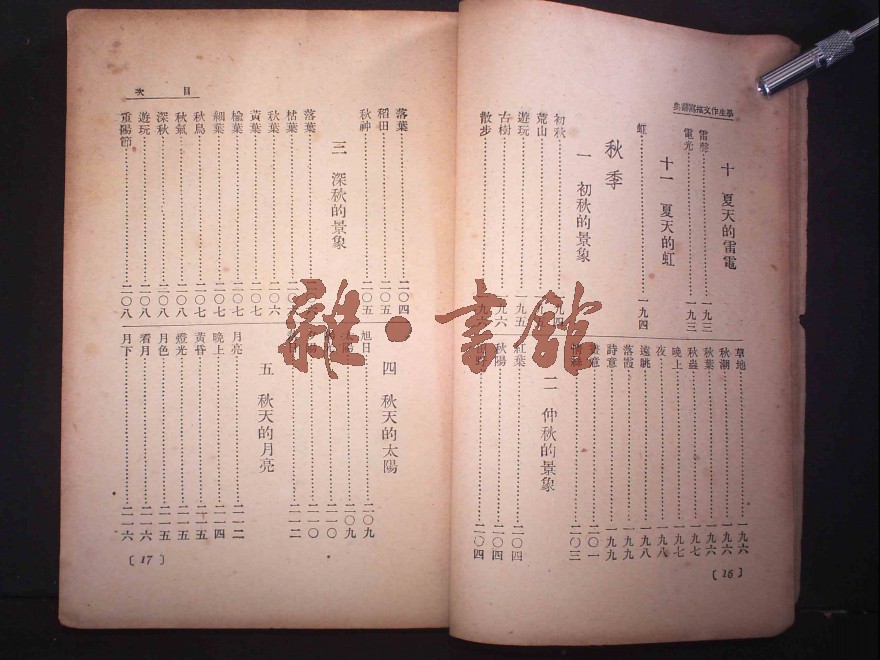 學生作文描寫辭典
十 夏天的雷電
雷聲……一九三
電光……一九三
十一 夏天的虹
虹……一九四
秋季
一 初秋的景象
初秋……九四
荒山……
遊玩……九五
古樹……九六
散步……
草地……一九六
秋潮……一九六
秋葉……一九六
秋蟲……一九七
晚上……一九七
夜……一九八
遠眺……一九八
落霞……一九九
詩意……一九九
畫意……二〇一
……二〇三
二 仲秋的景象
紅葉……二〇四
秋陽……二〇四
……二〇四
〔16〕
目次
落葉……二〇四
稻田……二〇五
秋神……二〇五
三 深秋的景象
落葉……
枯葉……二〇
秋葉……二〇六
黃葉……二〇七
楡葉……二〇七
細葉……二〇七
秋鳥……二〇七
秋氣……二〇八
深秋……二〇八
遊玩……二〇八
重陽節……二〇八
四 秋天的太陽
旭日……二〇九
……二〇九
……二一〇
……二一〇
……二一二
五 秋天的月亮
月亮……二一二
晚上……二一四
黃昏……二一五
燈光……二一五
月色……二一五
看月……二一六
月下……二一六
〔17〕
雜·書館